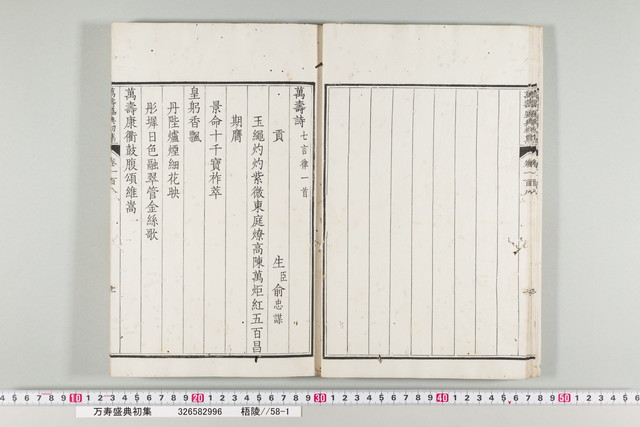 萬壽詩 七言律一首
貢 生臣俞忠謀
玉繩灼灼紫微東庭燎高陳萬炬紅五百昌
期膺
景命十千寶祚萃
皇躬香飄
丹陛爐煙細花映
彤墀日色融翠管金絲歌
萬壽康衢鼓腹頌維嵩
万寿盛典初集 326582996 梧陵//58-1